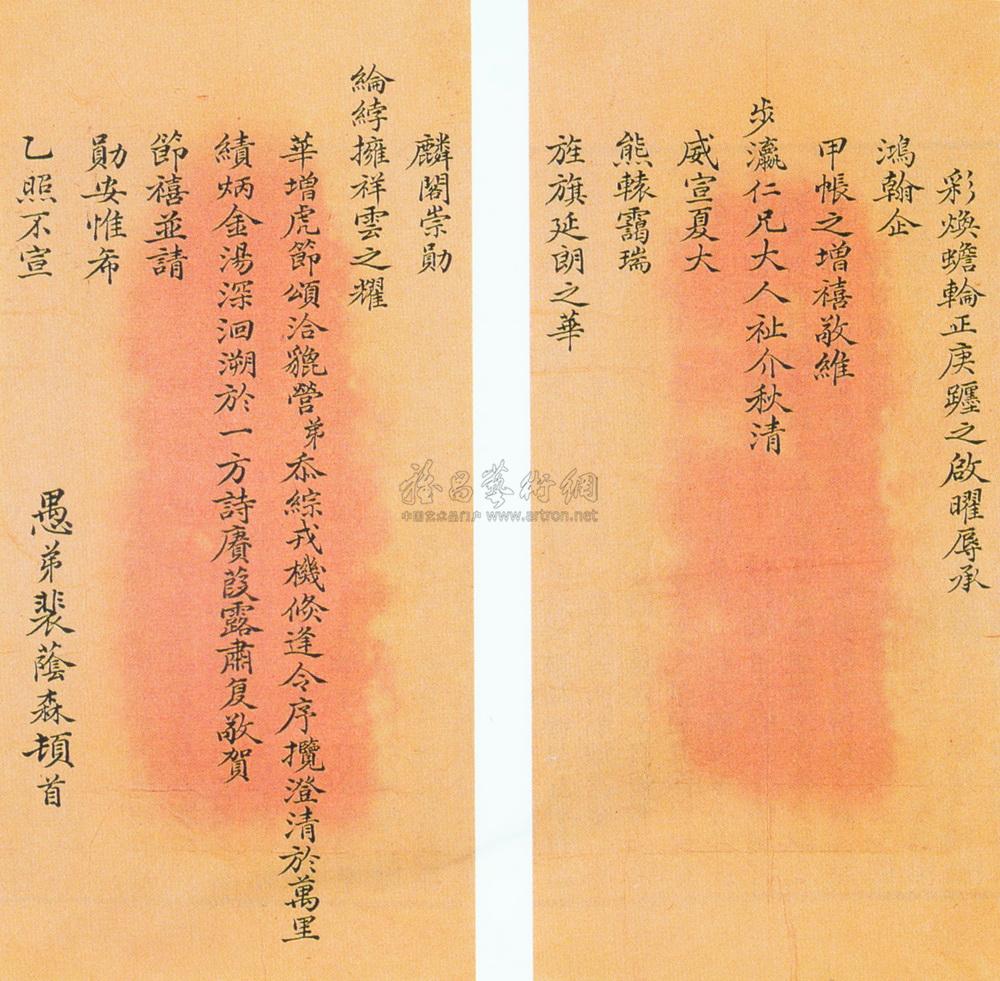 彩煥蟾輪正庚躔之啟曜辱承
鴻翰企
甲帳之增禧敬維
步瀛仁兄大人祉介秋清
威宣夏大
熊轅靄瑞
旌旗延朗之華
麟閣崇勛
綸綍擁祥雲之耀
華增虎節頌洽貔營弟忝綜戎機倏逢令序攬澄清於萬里
績炳金湯深洄溯於一方詩賡葭露肅复敬賀
節禧並請
勛安惟希
乙照不宣
愚弟裴蔭森頓首
雅昌藝術網
中国艺术品门户 www.artron.net